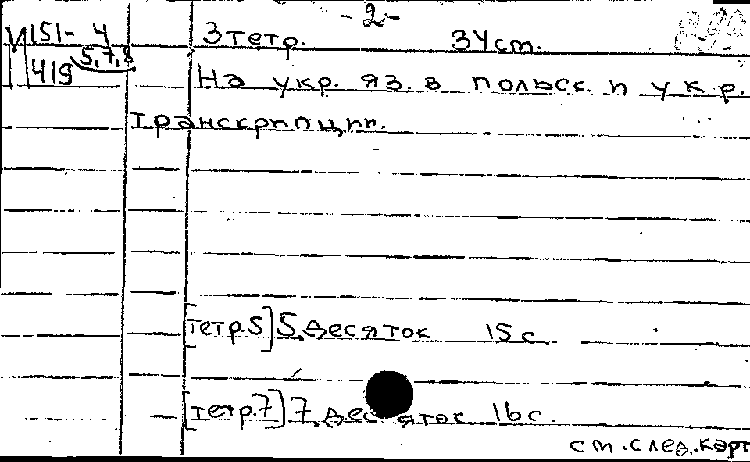 -2-
И151-4 3 тетр. 34 ст.
419 5,7,8 На укр. яз. в польск и укр.
транскрипции.
[тетр.5] 5 десяток 15 с.
[тетр.7] 7 десяток 16 с.
см. след. карт